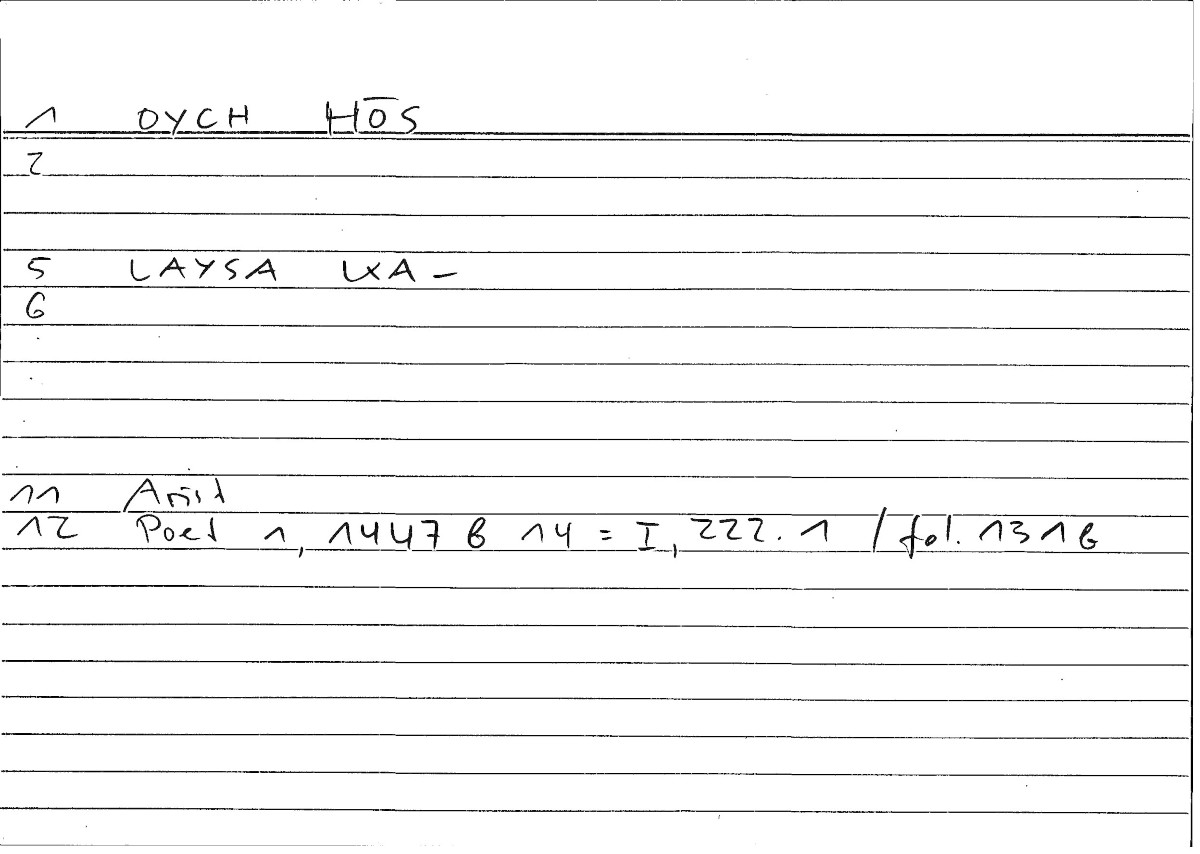 1 OYCH HŌS
2
5 LAYSA KA-
6
11 Arist
12 Poet 1, 1447 b 14 = I, 222.1 / fol. 131b